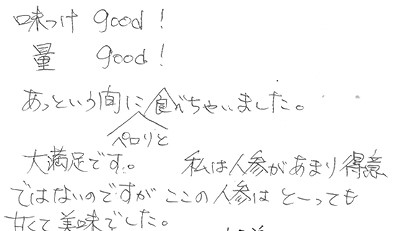 味つけ good!
量 good!
あっという間に食べちゃいました。
ペロリと
大満足です。 私は人参があまり得意
ではないのですが ここの人参は とーっても
甘くて美味でした。